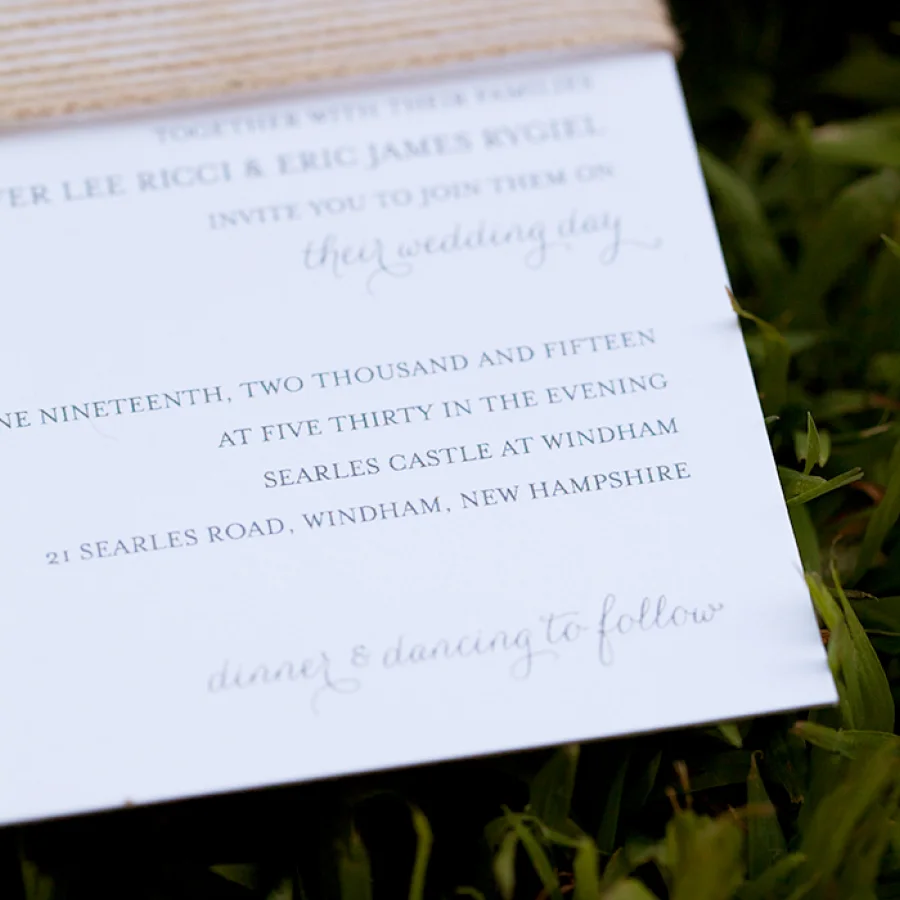 TOGETHER WITH THEIR FAMILIES
LEE RICCI & ERIC JAMES RYGIEL
INVITE YOU TO JOIN THEM ON
their wedding day
NINETEENTH, TWO THOUSAND AND FIFTEEN
AT FIVE THIRTY IN THE EVENING
SEARLES CASTLE AT WINDHAM
21 SEARLES ROAD, WINDHAM, NEW HAMPSHIRE
dinner & dancing to follow